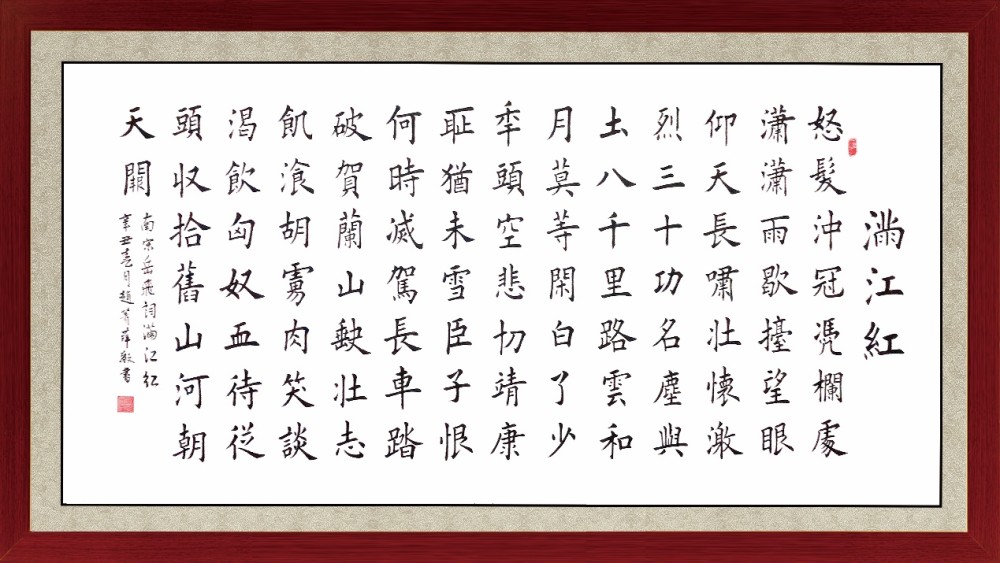 滿江紅
怒髮沖冠凴欄處
瀟瀟雨歇擡望眼
仰天長嘯壯懷激
烈三十功名塵與
土八千里路雲和
月莫等閑白了少
年頭空悲切靖康
耻猶未雪臣子恨
何時滅駕長車踏
破賀蘭山缺壯志
飢湌胡虜肉笑談
渴飲匈奴血待從
頭收拾舊山河朝
天闕
南宋岳飛詞滿江紅
辛丑春月趙萍敬書